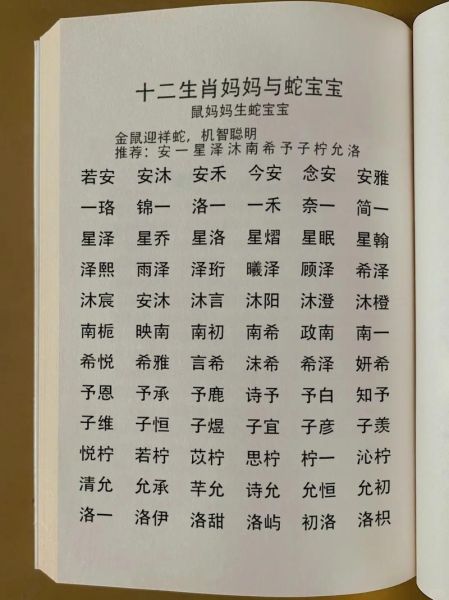 十二生肖妈妈与蛇宝宝
鼠妈妈生蛇宝宝
金鼠迎祥蛇，机智聪明
推荐：安一星泽沐南希予子柠允洛
若安 安沐 安禾 今安 念安 安雅
一珞 锦一 洛一 一禾 奈一 简一
星泽 星乔 星洛 星熠 星眠 星翰
泽熙 雨泽 泽珩 曦泽 顾泽 希泽
沐宸 安沐 沐言 沐阳 沐澄 沐橙
南栀 映南 南初 南希 政南 南一
希悦 希雅 言希 沫希 希泽 妍希
予恩 予承 予鹿 诗予 予白 知予
子维 子恒 子煜 子宜 子彦 子羡
悦柠 若柠 苡柠 思柠 柠一 沁柠
清允 允承 芊允 诗允 允恒 允初
洛一 洛伊 洛甜 洛屿 初洛 洛枳